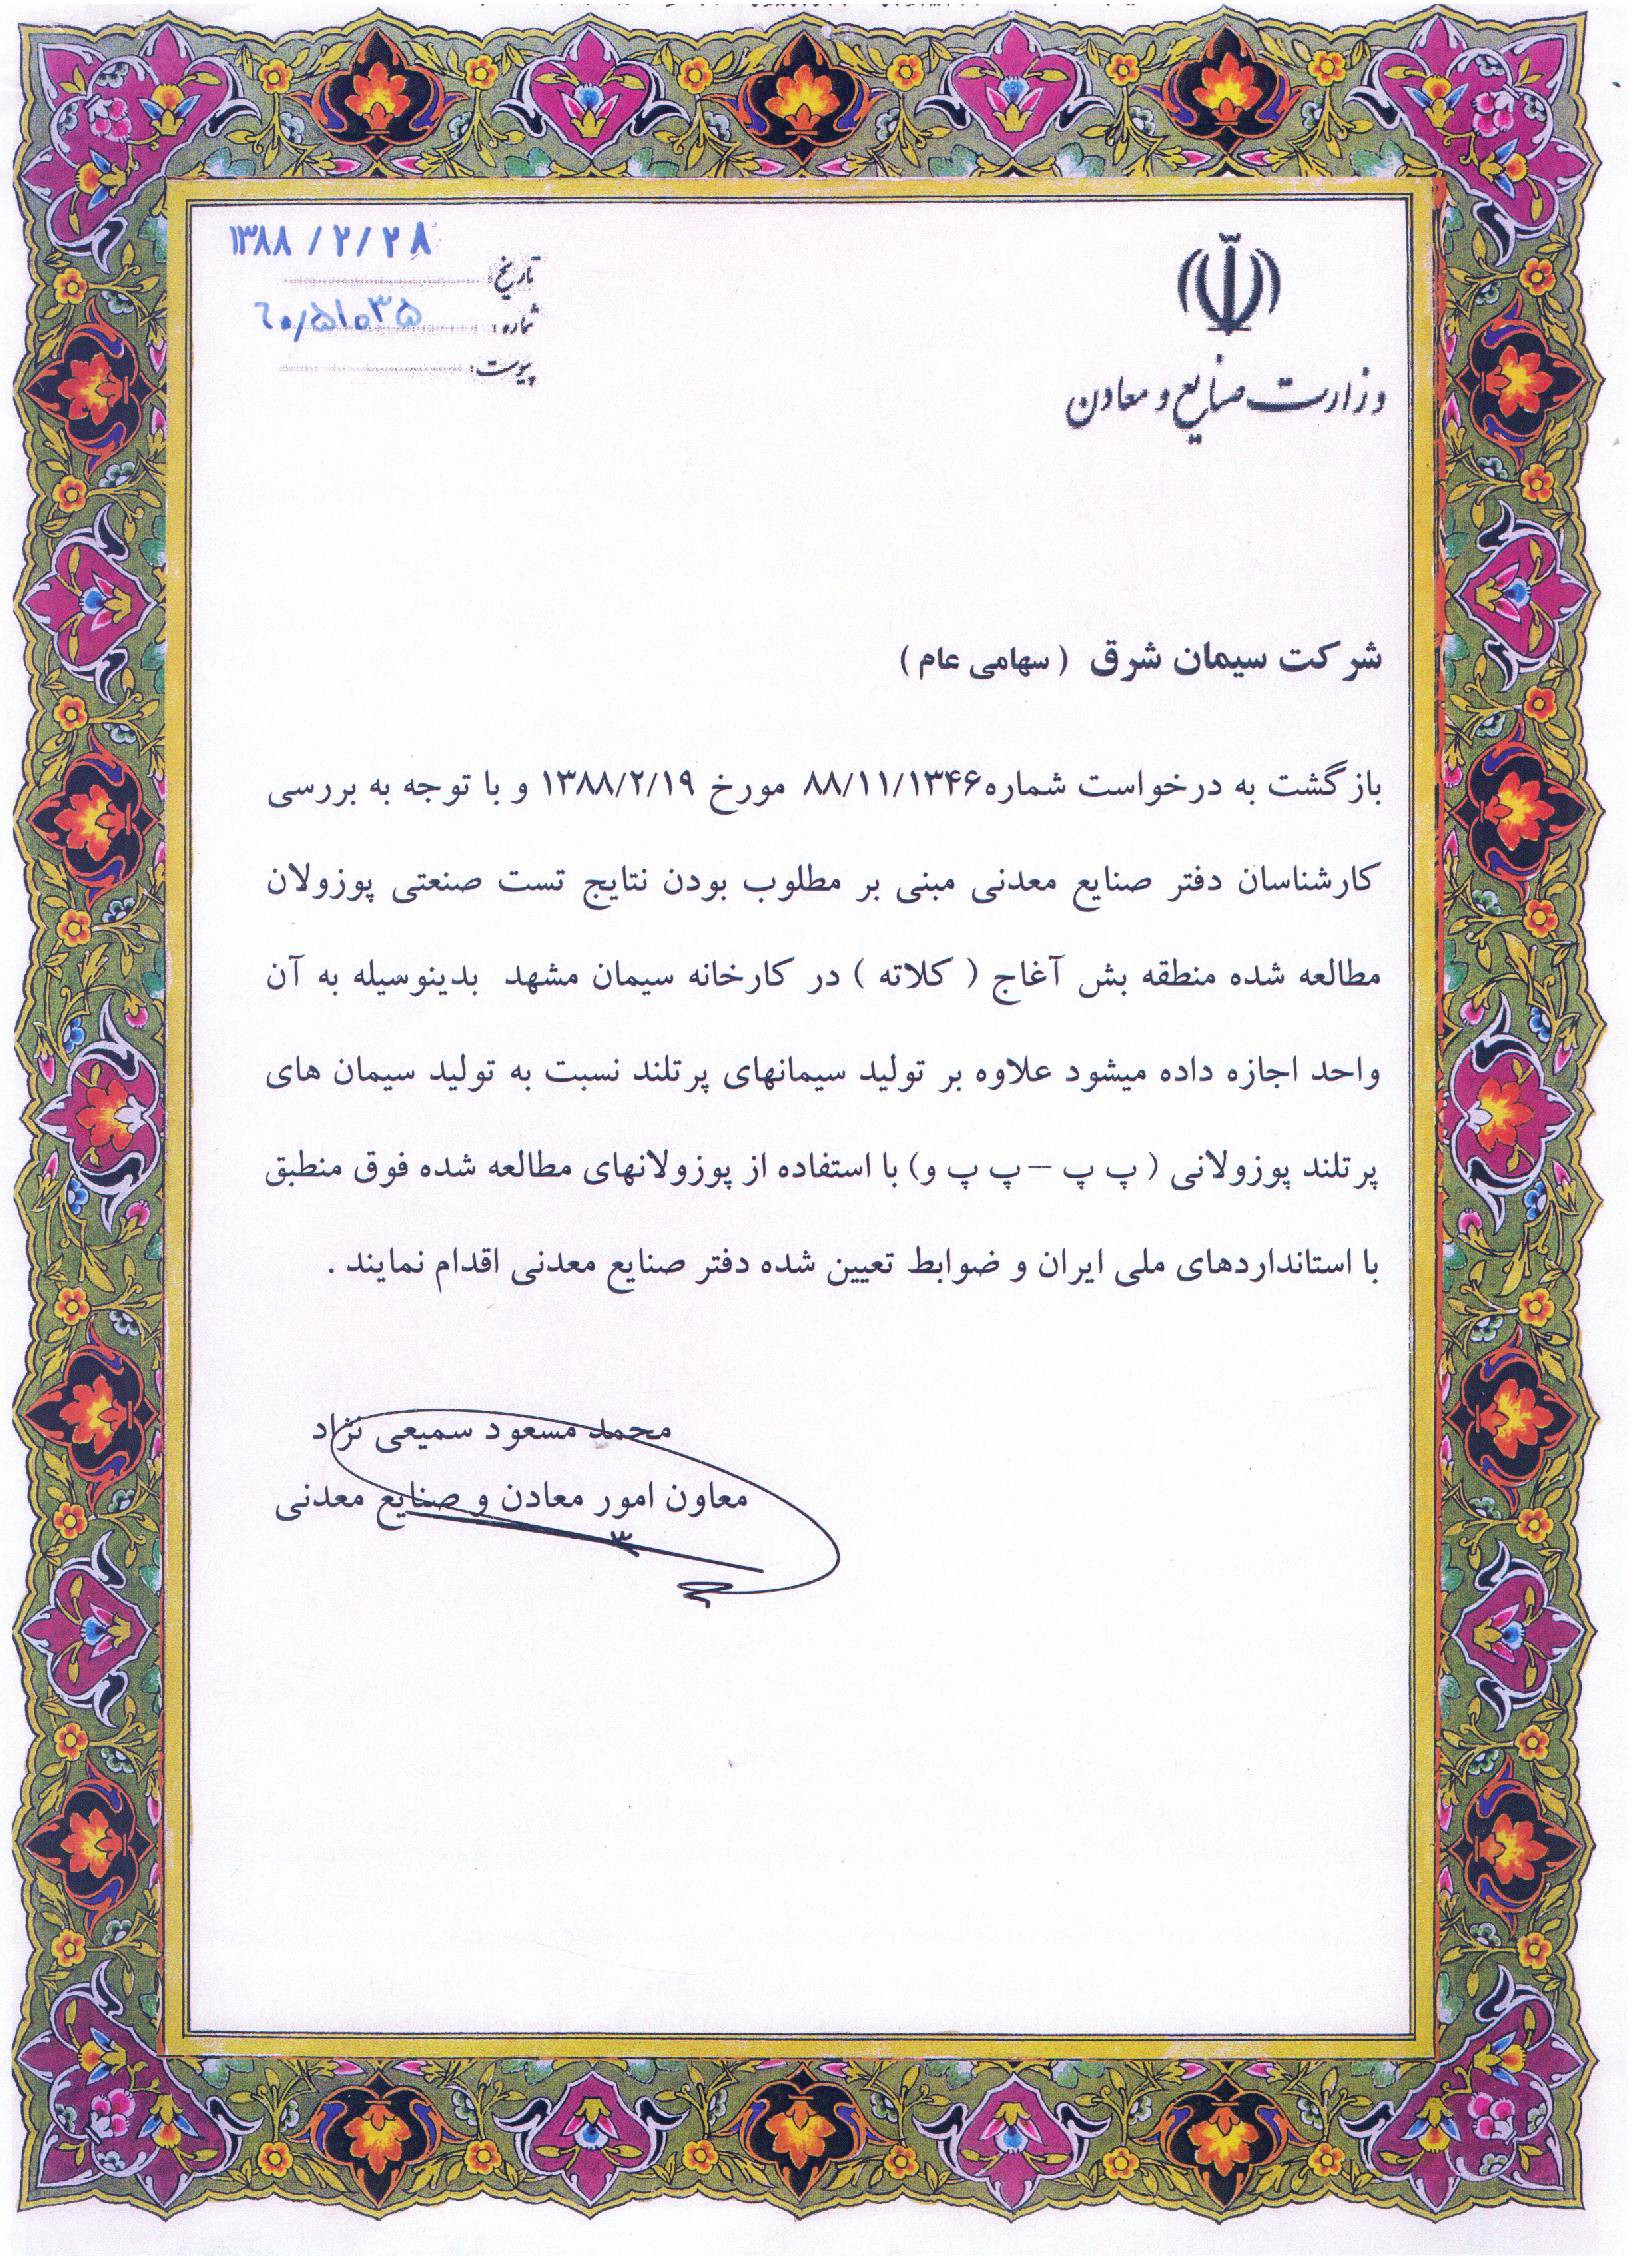 وزارت صنایع و معادن
تاریخ: ۱۳۸۸/۲/۲۸
شماره: ۶۰/۵۱۰۳۵
پیوست:
شرکت سیمان شرق (سهامی عام)
بازگشت به درخواست شماره ۸۸/۱۱/۱۳۴۶ مورخ ۱۳۸۸/۲/۱۹ و با توجه به بررسی
کارشناسان دفتر صنایع معدنی مبنی بر مطلوب بودن نتایج تست صنعتی پوزولان
مطالعه شده منطقه بش آغاج ( کلاته ) در کارخانه سیمان مشهد بدینوسیله به آن
واحد اجازه داده میشود علاوه بر تولید سیمانهای پرتلند نسبت به تولید سیمان های
پرتلند پوزولانی ( پ پ – پ پ و) با استفاده از پوزولانهای مطالعه شده فوق منطبق
با استانداردهای ملی ایران و ضوابط تعیین شده دفتر صنایع معدنی اقدام نمایند .
محمد مسعود سمیعی نژاد
معاون امور معادن و صنایع معدنی